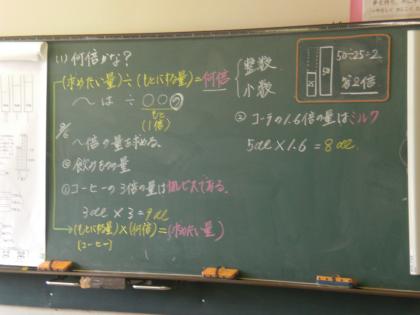 (1) 何倍かな？
(求めたい量)÷(もとにする量)=何倍
整数
小数
〜は ÷ ○○の
もと
(1倍)
50÷25=2
答2倍
25
50
〜倍の量を求める。
飲みものの量
①コーヒーの3倍の量は
3dL×3=9dL
(もとにする量)×(何倍)=(求めたい量)
(コーヒー)
の1.6倍の量はミルク
5dL×1.6=8dL